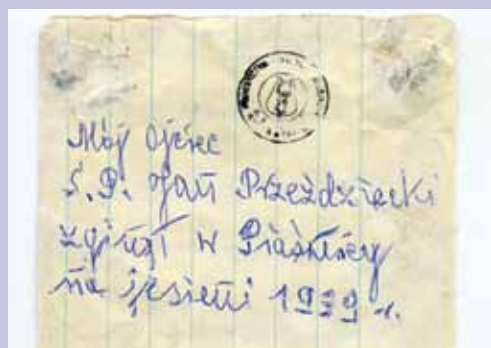 Mój Ojciec
Ś.P. Jan Przeździecki
zginął w Piaśnicy
na jesieni 1939 r.